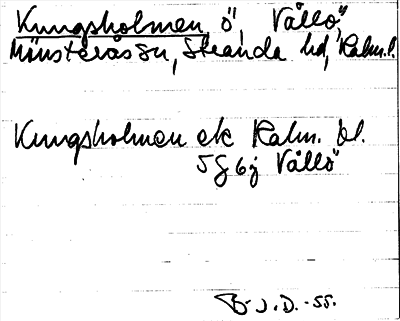 Kungsholmen, ö, Vållö,
Mönsterås sn, Stranda hd, Kalm. l.
Kungsholmen ek Kalm. bl.
5G6j Vållö
B. J. D. -55.